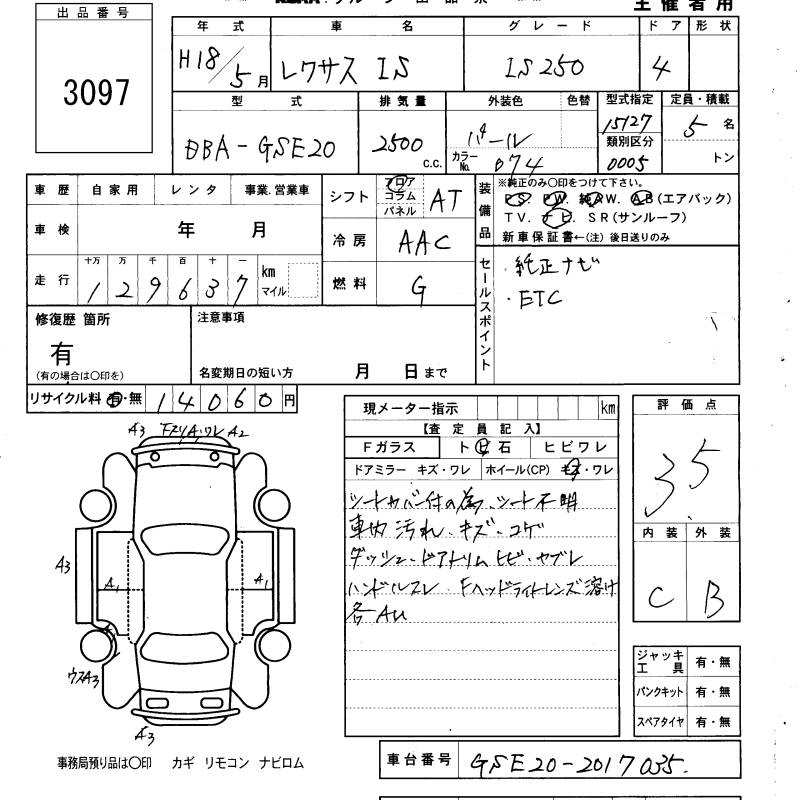 主催者用
出品番号
3097
年式 車名 グレード ドア 形状
H18/5月 レクサス IS IS250 4
型式 排気量 外装色 色替 型式指定 定員・積載
DBA-GSE20 2500 c.c. パール 15127 5名
カラーNo. 074 類別区分 0005 トン
車歴 自家用 レンタ 事業.営業車
車検 年 月
走行 十万 万 千 百 十 一
1 2 9 6 3 7 km マイル
シフト フロア コラム パネル AT
冷房 AAC
燃料 G
装備品
※純正のみ○印をつけて下さい。
PS. PW. 純AW. AB(エアバック)
TV. ナビ. SR(サンルーフ)
新車保証書←(注) 後日送りのみ
セールスポイント
・純正ナビ
・ETC
修復歴 箇所
有
(有の場合は○印を)
注意事項
名変期日の短い方 月 日まで
リサイクル料 有・無 14060円
現メーター指示 km
【査定員記入】
Fガラス トビ石 ヒビワレ
ドアミラー キズ・ワレ ホイール(CP) キズ・ワレ
シートカバー付の為、シート不明
車内 汚れ、キズ・コゲ
ダッシュ・ドアトリム ヒビ・ヤブレ
ハンドルスレ ・ Fヘッドライトレンズ溶け
各AU
評価点
3.5
内装 外装
C B
A3 FスリA・ワレ A2
A3
A1
A1
A1
ウスA3
A3
ジャッキ工具 有・無
パンクキット 有・無
スペアタイヤ 有・無
事務局預り品は○印 カギ リモコン ナビロム
車台番号 GSE20-2017035.